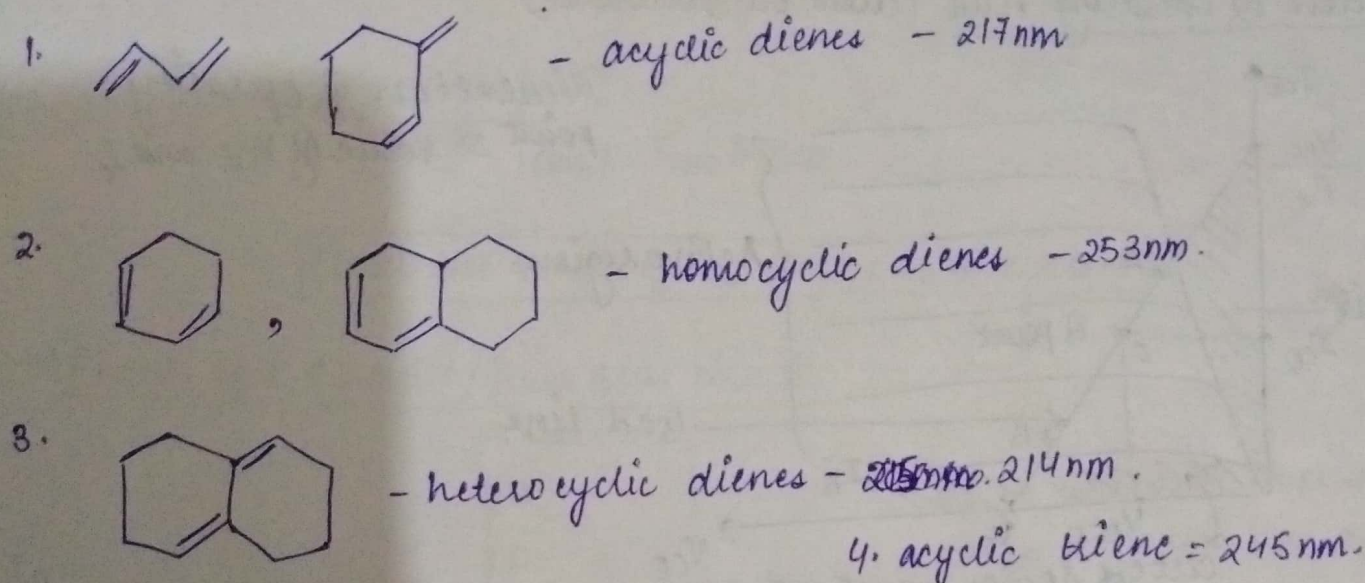 1. - acyclic dienes - 217nm
2. , - homocyclic dienes - 253nm.
3. - heterocyclic dienes - 214nm.
4. acyclic triene = 245nm.